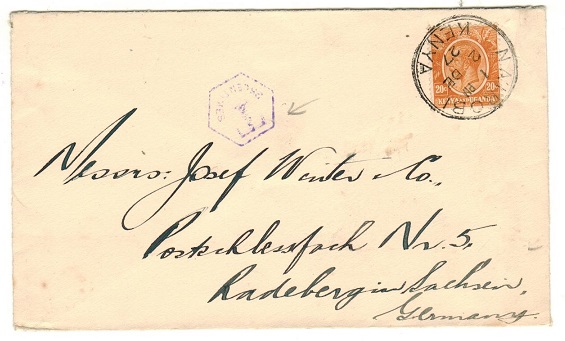 NAIROBI
KENYA
27
20c 20c
KENYA AND UGANDA
Messrs: Josef Winter & Co.,
Postschliessfach Nr. 5,
Radeberg in Sachsen,
Germany.